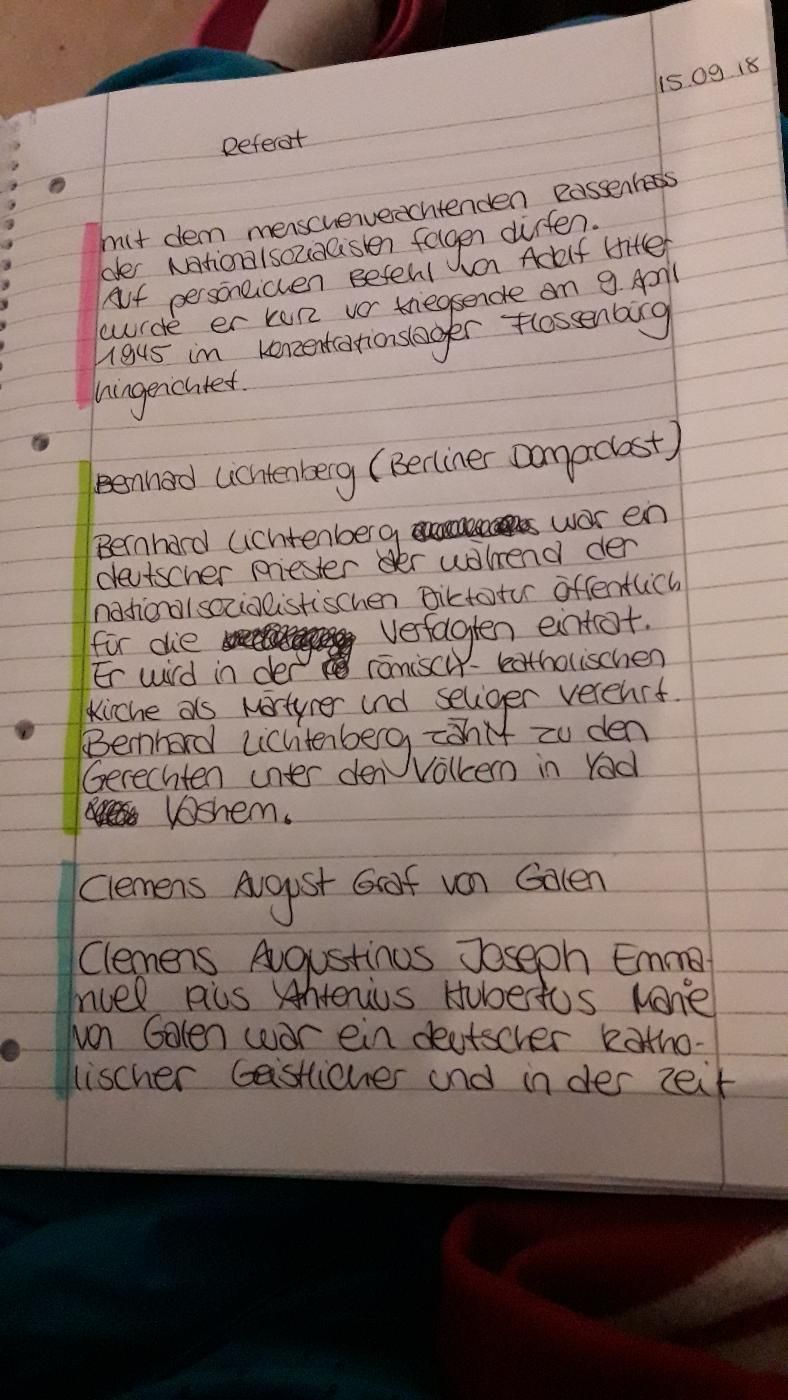 15.09.18
Referat
mit dem menschenverachtenden Rassenhass
der Nationalsozialisten folgen dürfen.
Auf persönlichen Befehl von Adolf Hitler
wurde er kurz vor Kriegsende am 9. April
1945 im Konzentrationslager Flossenbürg
hingerichtet.
Bernhard Lichtenberg (Berliner Dompropst)
Bernhard Lichtenberg war ein
deutscher Priester der während der
nationalsozialistischen Diktatur öffentlich
für die Verfolgten eintrat.
Er wird in der römisch-katholischen
Kirche als Märtyrer und seliger verehrt.
Bernhard Lichtenberg zählt zu den
Gerechten unter den Völkern in Yad
Vashem.
Clemens August Graf von Galen
Clemens Augustinus Joseph Emma-
nuel Pius Antonius Hubertus Marie
von Galen war ein deutscher katho-
lischer Geistlicher und in der Zeit